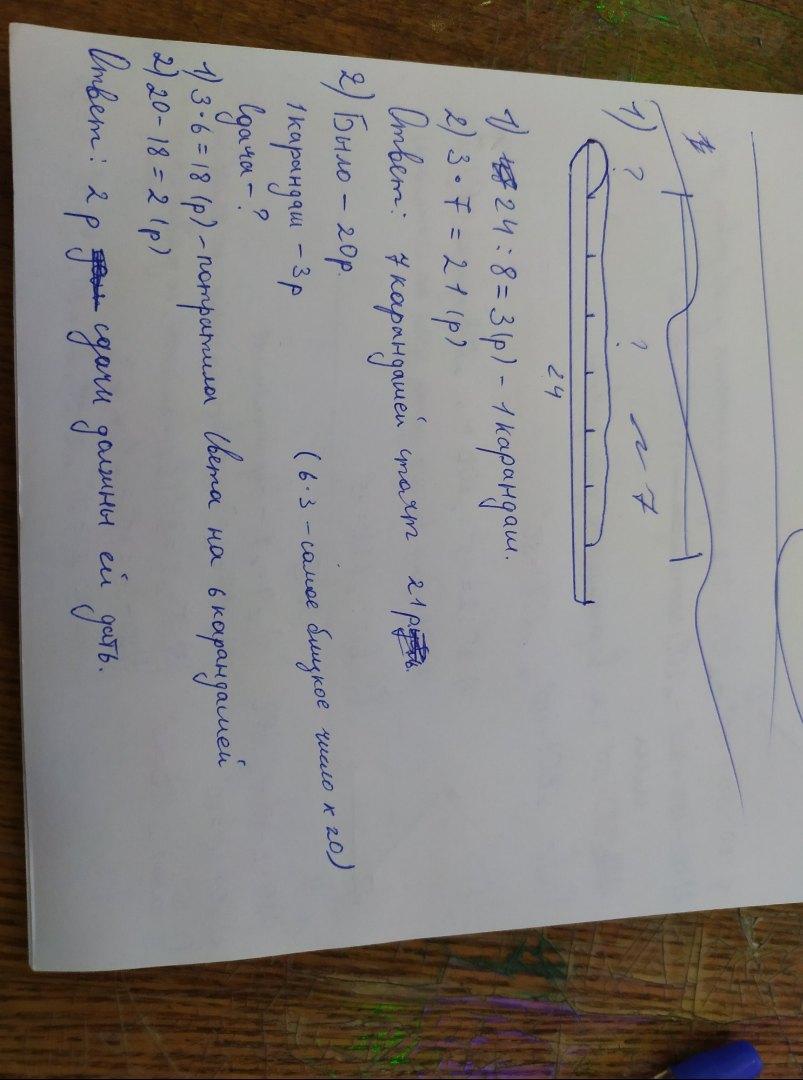 1)
?
?
~ 7
24
1) 24 : 8 = 3(р) - 1 карандаш.
2) 3 · 7 = 21 (р)
Ответ: 7 карандашей стоят 21 р.
2) Было - 20р.
1 карандаш - 3р
(6·3 - самое близкое число к 20)
Сдача - ?
1) 3·6=18 (р) - потратила Света на 6 карандашей
2) 20 - 18 = 2 (р)
Ответ: 2 р сдачи должны ей дать.